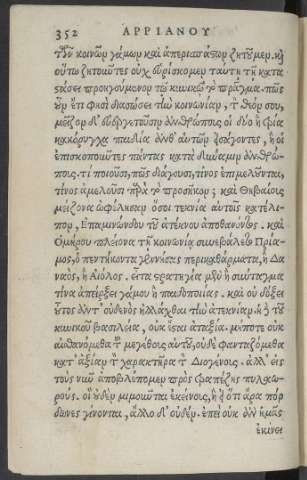 352 ΑΡΡΙΑΝΟΥ
τῶν κοινῶν γάμων καὶ ἀπεριστάτων ζητοῦμεν. καὶ
οὕτω ζητοῦντες οὐχ εὑρίσκομεν ταύτῃ τῇ κατα
στάσει προηγούμενον τῷ κυνικῷ τὸ πρᾶγμα. πῶς
οὖν ἔτι φησὶ διασώσει τὴν κοινωνίαν, τὸν θεόν σου,
μείζον δ' εὐεργετοῦσιν ἀνθρώπους οἱ δύο ἢ τρία
κακόρυγχα παιδία ἀνθ' αὑτῶν εἰσάγοντες, ἢ οἱ
ἐπισκοποῦντες πάντας κατὰ δύναμιν ἀνθρώ-
πους. τί ποιοῦσι, πῶς διάγουσι, τίνος ἐπιμελοῦνται,
τίνος ἀμελοῦσι παρὰ τὸ προσῆκον; καὶ Θηβαίοις
μείζονα ὠφέλησαν ὅσοι τεκνία αὐτοῖς κατέλι-
πον, Ἐπαμινώνδου τοῦ ἀτέκνου ἀποθανόντος. καὶ
Ὁμήρου πλείονα τῇ κοινωνίᾳ συνεβάλετο Πρία-
μος, ὁ πεντήκοντα γεννήσας περικαθάρματα, ἢ Δα
ναὸς, ἢ Αἰόλος. εἶτα στρατηγία μὲν ἢ σύνταγμα
τινα ἀπείρξει γάμου ἢ παιδοποιίας. καὶ οὐ δόξει
οὗτος ἀντ' οὐδενὸς ἠλλάχθαι τὴν ἀτεκνίαν· ἡ δὲ τοῦ
κυνικοῦ βασιλεία, οὐκ ἔσται ἀταξία. μήποτε οὐκ
αἰσθανόμεθα τοῦ μεγέθους αὐτοῦ, οὐδὲ φανταζόμεθα
κατ' ἀξίαν τὸν χαρακτῆρα τὸν Διογένους. ἀλλ' εἰς
τοὺς νῦν ἀποβλέπομεν πρὸς τραπέζης πυλαω-
ρούς. οἳ οὐδὲν μιμοῦνται ἐκείνους, ἢ εἰ ὅτι ἄρα πόρ
δωνες γίνονται, ἄλλο δ' οὐδέν. ἐπεὶ οὐκ ἂν ἡμᾶς
ἐκίνει